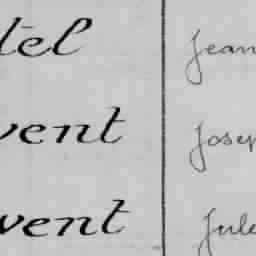 tel Jean
vent Josep
vent Jule